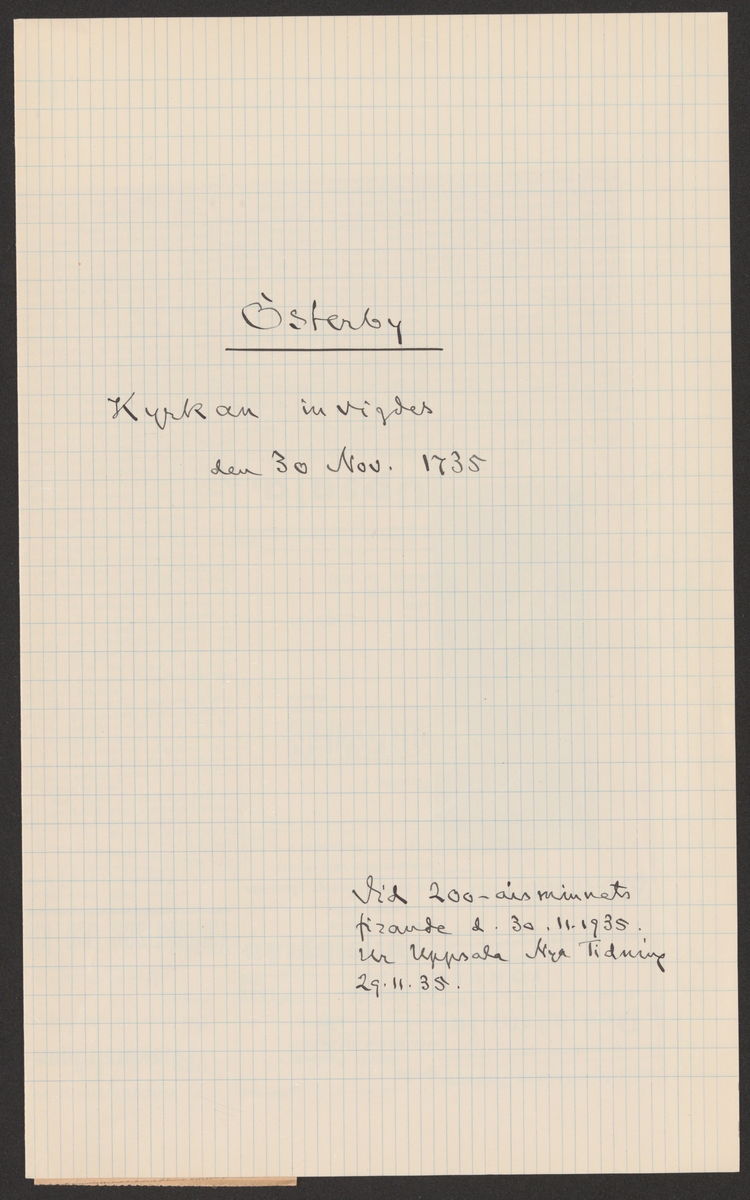 Österby
Kyrkan invigdes
den 30 Nov. 1735
Vid 200-årsminnets
firande d. 30.11.1935.
Ur Uppsala Nya Tidning
29.11.35.